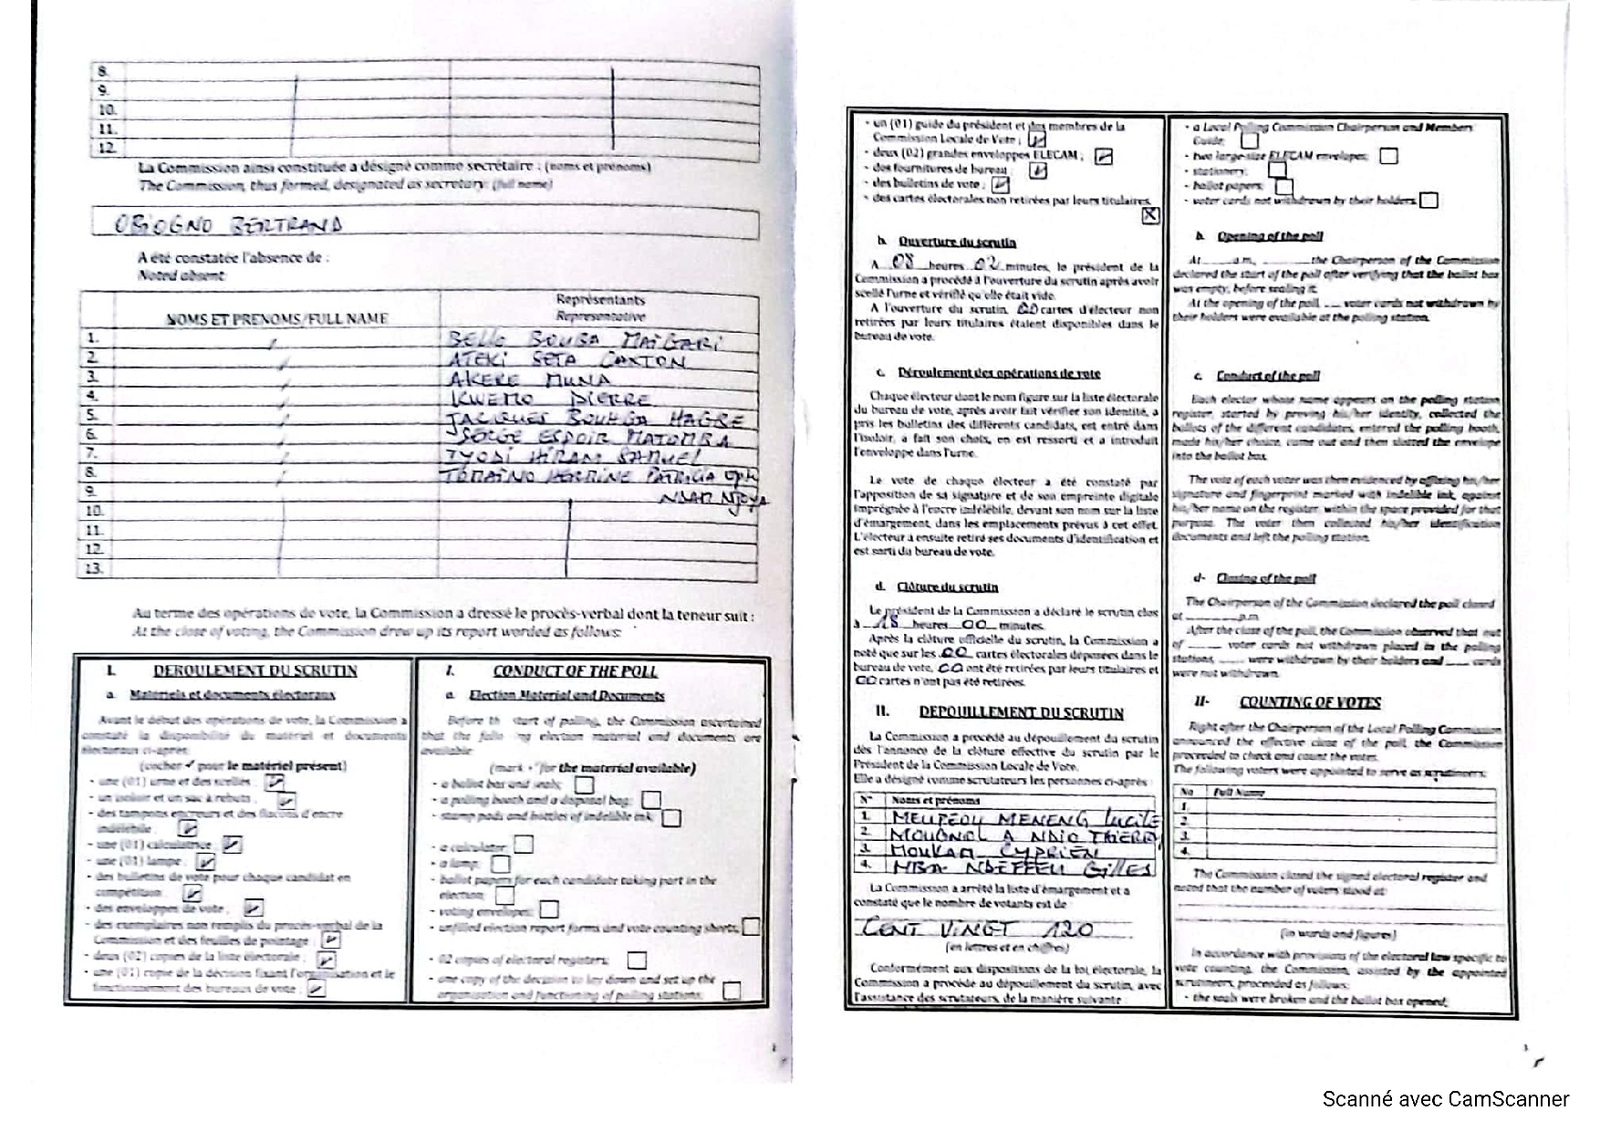 8.
9.
10.
11.
12.
La Commission ainsi constituée a désigné comme secrétaire : (noms et prénoms)
The Commission, thus formed, designated as secretary: (full name)
OBIOGNO BERTRAND
A été constatée l'absence de :
Noted absent:
NOMS ET PRENOMS/FULL NAME
Représentants
Representative
1. BELLO BOUBA MAIGARI
2. ATEKI SETA CAXTON
3. AKERE MUNA
4. KWEMO PIERRE
5. JACQUES BOUHGA HAGBE
6. SERGE ESPOIR MATOMBA
7. IYODI HIRAM SAMUEL
8. TOMAINO HERMINE PATRICIA épse
9. NDAM NJOYA
10.
11.
12.
13.
Au terme des opérations de vote, la Commission a dressé le procès-verbal dont la teneur suit :
At the close of voting, the Commission drew up its report worded as follows:
I. DEROULEMENT DU SCRUTIN
a. Matériels et documents électoraux
Avant le début des opérations de vote, la Commission a
constaté la disponibilité du matériel et documents
électoraux ci-après
(cocher ✓ pour le matériel présent)
- une (01) urne et des scellés
- un isoloir et un sac à rebuts
- des tampons encreurs et des flacons d'encre
indélébile
- une (01) calculatrice
- une (01) lampe
- des bulletins de vote pour chaque candidat en
compétition
- des enveloppes de vote
- des exemplaires non remplis du procès-verbal de la
Commission et des feuilles de pointage
- deux (02) copies de la liste électorale
- une (01) copie de la décision fixant l'organisation et le
fonctionnement des bureaux de vote
I. CONDUCT OF THE POLL
a. Election Material and Documents
Before the start of polling, the Commission ascertained
that the following election material and documents are
available:
(mark for the material available)
- a ballot box and seals;
- a polling booth and a disposal bag;
- stamp pads and bottles of indelible ink;
- a calculator;
- a lamp;
- ballot papers for each candidate taking part in the
election;
- voting envelopes;
- unfilled election report forms and vote counting sheets;
- 02 copies of electoral registers;
- one copy of the decision to lay down and set up the
organisation and functioning of polling stations;
- un (01) guide du président et des membres de la
Commission Locale de Vote ;
- deux (02) grandes enveloppes ELECAM ;
- des fournitures de bureau ;
- des bulletins de vote ;
- des cartes électorales non retirées par leurs titulaires.
b. Ouverture du scrutin
A 08 heures 02 minutes, le président de la
Commission a procédé à l'ouverture du scrutin après avoir
scellé l'urne et vérifié qu'elle était vide.
A l'ouverture du scrutin, 00 cartes d'électeur non
retirées par leurs titulaires étaient disponibles dans le
bureau de vote.
c. Déroulement des opérations de vote
Chaque électeur dont le nom figure sur la liste électorale
du bureau de vote, après avoir fait vérifier son identité, a
pris les bulletins des différents candidats, est entré dans
l'isoloir, a fait son choix, en est ressorti et a introduit
l'enveloppe dans l'urne.
Le vote de chaque électeur a été constaté par
l'apposition de sa signature et de son empreinte digitale
imprégnée à l'encre indélébile, devant son nom sur la liste
d'émargement, dans les emplacements prévus à cet effet.
L'électeur a ensuite retiré ses documents d'identification et
est sorti du bureau de vote.
d. Clôture du scrutin
Le président de la Commission a déclaré le scrutin clos
à 18 heures 00 minutes.
Après la clôture officielle du scrutin, la Commission a
noté que sur les 00 cartes électorales déposées dans le
bureau de vote, 00 ont été retirées par leurs titulaires et
00 cartes n'ont pas été retirées.
II. DEPOUILLEMENT DU SCRUTIN
La Commission a procédé au dépouillement du scrutin
dès l'annonce de la clôture effective du scrutin par le
Président de la Commission Locale de Vote.
Elle a désigné comme scrutateurs les personnes ci-après
N° Noms et prénoms
1. MEUPEOU MENENG Lucile
2. MOUGNOL A NDIO THIERRY
3. MOUKAM CYPRIEN
4. MBA NDEFFEU Gilles
La Commission a arrêté la liste d'émargement et a
constaté que le nombre de votants est de
CENT VINGT 120
(en lettres et en chiffres)
Conformément aux dispositions de la loi électorale, la
Commission a procédé au dépouillement du scrutin, avec
l'assistance des scrutateurs, de la manière suivante
- a Local Polling Commission Chairperson and Members
Guide;
- two large-size ELECAM envelopes;
- stationery;
- ballot papers;
- voter cards not withdrawn by their holders.
b. Opening of the poll
At ......a.m, ......the Chairperson of the Commission
declared the start of the poll after verifying that the ballot box
was empty, before sealing it.
At the opening of the poll, ... voter cards not withdrawn by
their holders were available at the polling station.
c. Conduct of the poll
Each elector whose name appears on the polling station
register, started by proving his/her identity, collected the
ballots of the different candidates, entered the polling booth,
made his/her choice, came out and then slotted the envelope
into the ballot box.
The vote of each voter was then evidenced by affixing his/her
signature and fingerprint marked with indelible ink, against
his/her name on the register, within the space provided for that
purpose. The voter then collected his/her identification
documents and left the polling station.
d- Closing of the poll
The Chairperson of the Commission declared the poll closed
at ..........p.m
After the close of the poll, the Commission observed that out
of ...... voter cards not withdrawn placed in the polling
stations, ..... were withdrawn by their holders and ..... cards
were not withdrawn.
II- COUNTING OF VOTES
Right after the Chairperson of the Local Polling Commission
announced the effective close of the poll, the Commission
proceeded to check and count the votes.
The following voters were appointed to serve as scrutineers:
No Full Name
1.
2.
3.
4.
The Commission closed the signed electoral register and
noted that the number of voters stood at:
(in words and figures)
In accordance with provisions of the electoral law specific to
vote counting, the Commission, assisted by the appointed
scrutineers, proceeded as follows:
- the seals were broken and the ballot box opened;
Scanné avec CamScanner